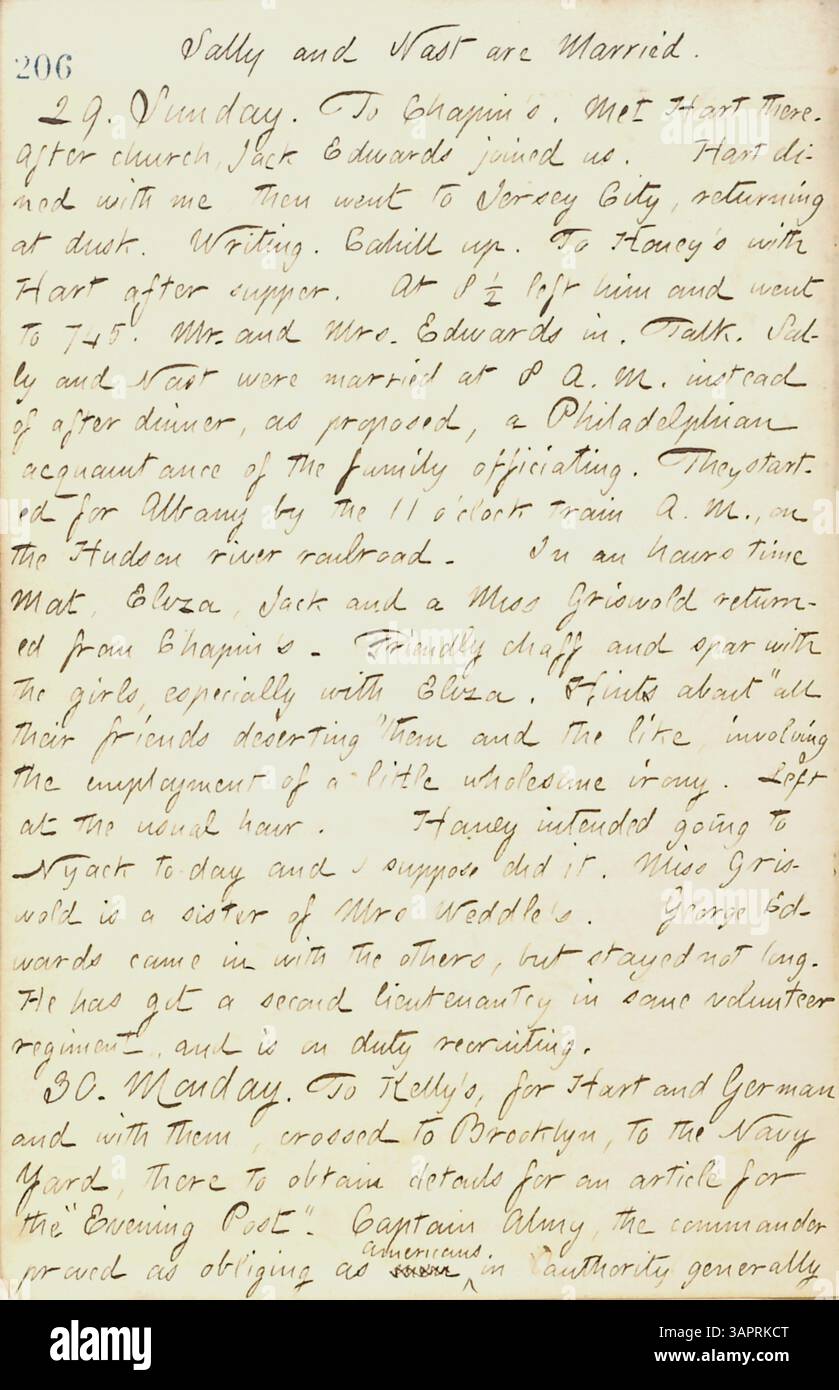 206
Sally and Nast are Married.
29. Sunday. To Chapin's. Met Hart there.
After church, Jack Edwards joined us. Hart di-
ned with me then went to Jersey City, returning
at dusk. Writing. Cahill up. To Haney's with
Hart after supper. At 8 ½ left him and went
to 745. Mr. and Mrs. Edwards in. Talk. Sal-
ly and Nast were married at 8 A. M. instead
of after dinner, as proposed, a Philadelphian
acquaintance of the family officiating. They start-
ed for Albany by the 11 o'clock train A. M., on
the Hudson river railroad - In an hours time
Mat, Eliza, Jack and a Miss Griswold return-
ed from Chapin's - Friendly chaff and spar with
the girls, especially with Eliza. Hints about "all
their friends deserting" them and the like, involving
the employment of a little wholesome irony. Left
at the usual hour. Haney intended going to
Nyack to day and I suppose did it. Miss Gris-
wold is a sister of Mrs Weddle's. George Ed-
wards came in with the others, but stayed not long.
He has got a second lieutenantcy in some volunteer
regiment, and is on duty recruiting.
30. Monday. To Kelly's, for Hart and German
and with them, crossed to Brooklyn, to the Navy
Yard, there to obtain details for an article for
the "Evening Post". Captain Almy, the commander
americans.
proved as obliging as in authority generally
alamy
Image ID: 2APRKCT
www.alamy.com